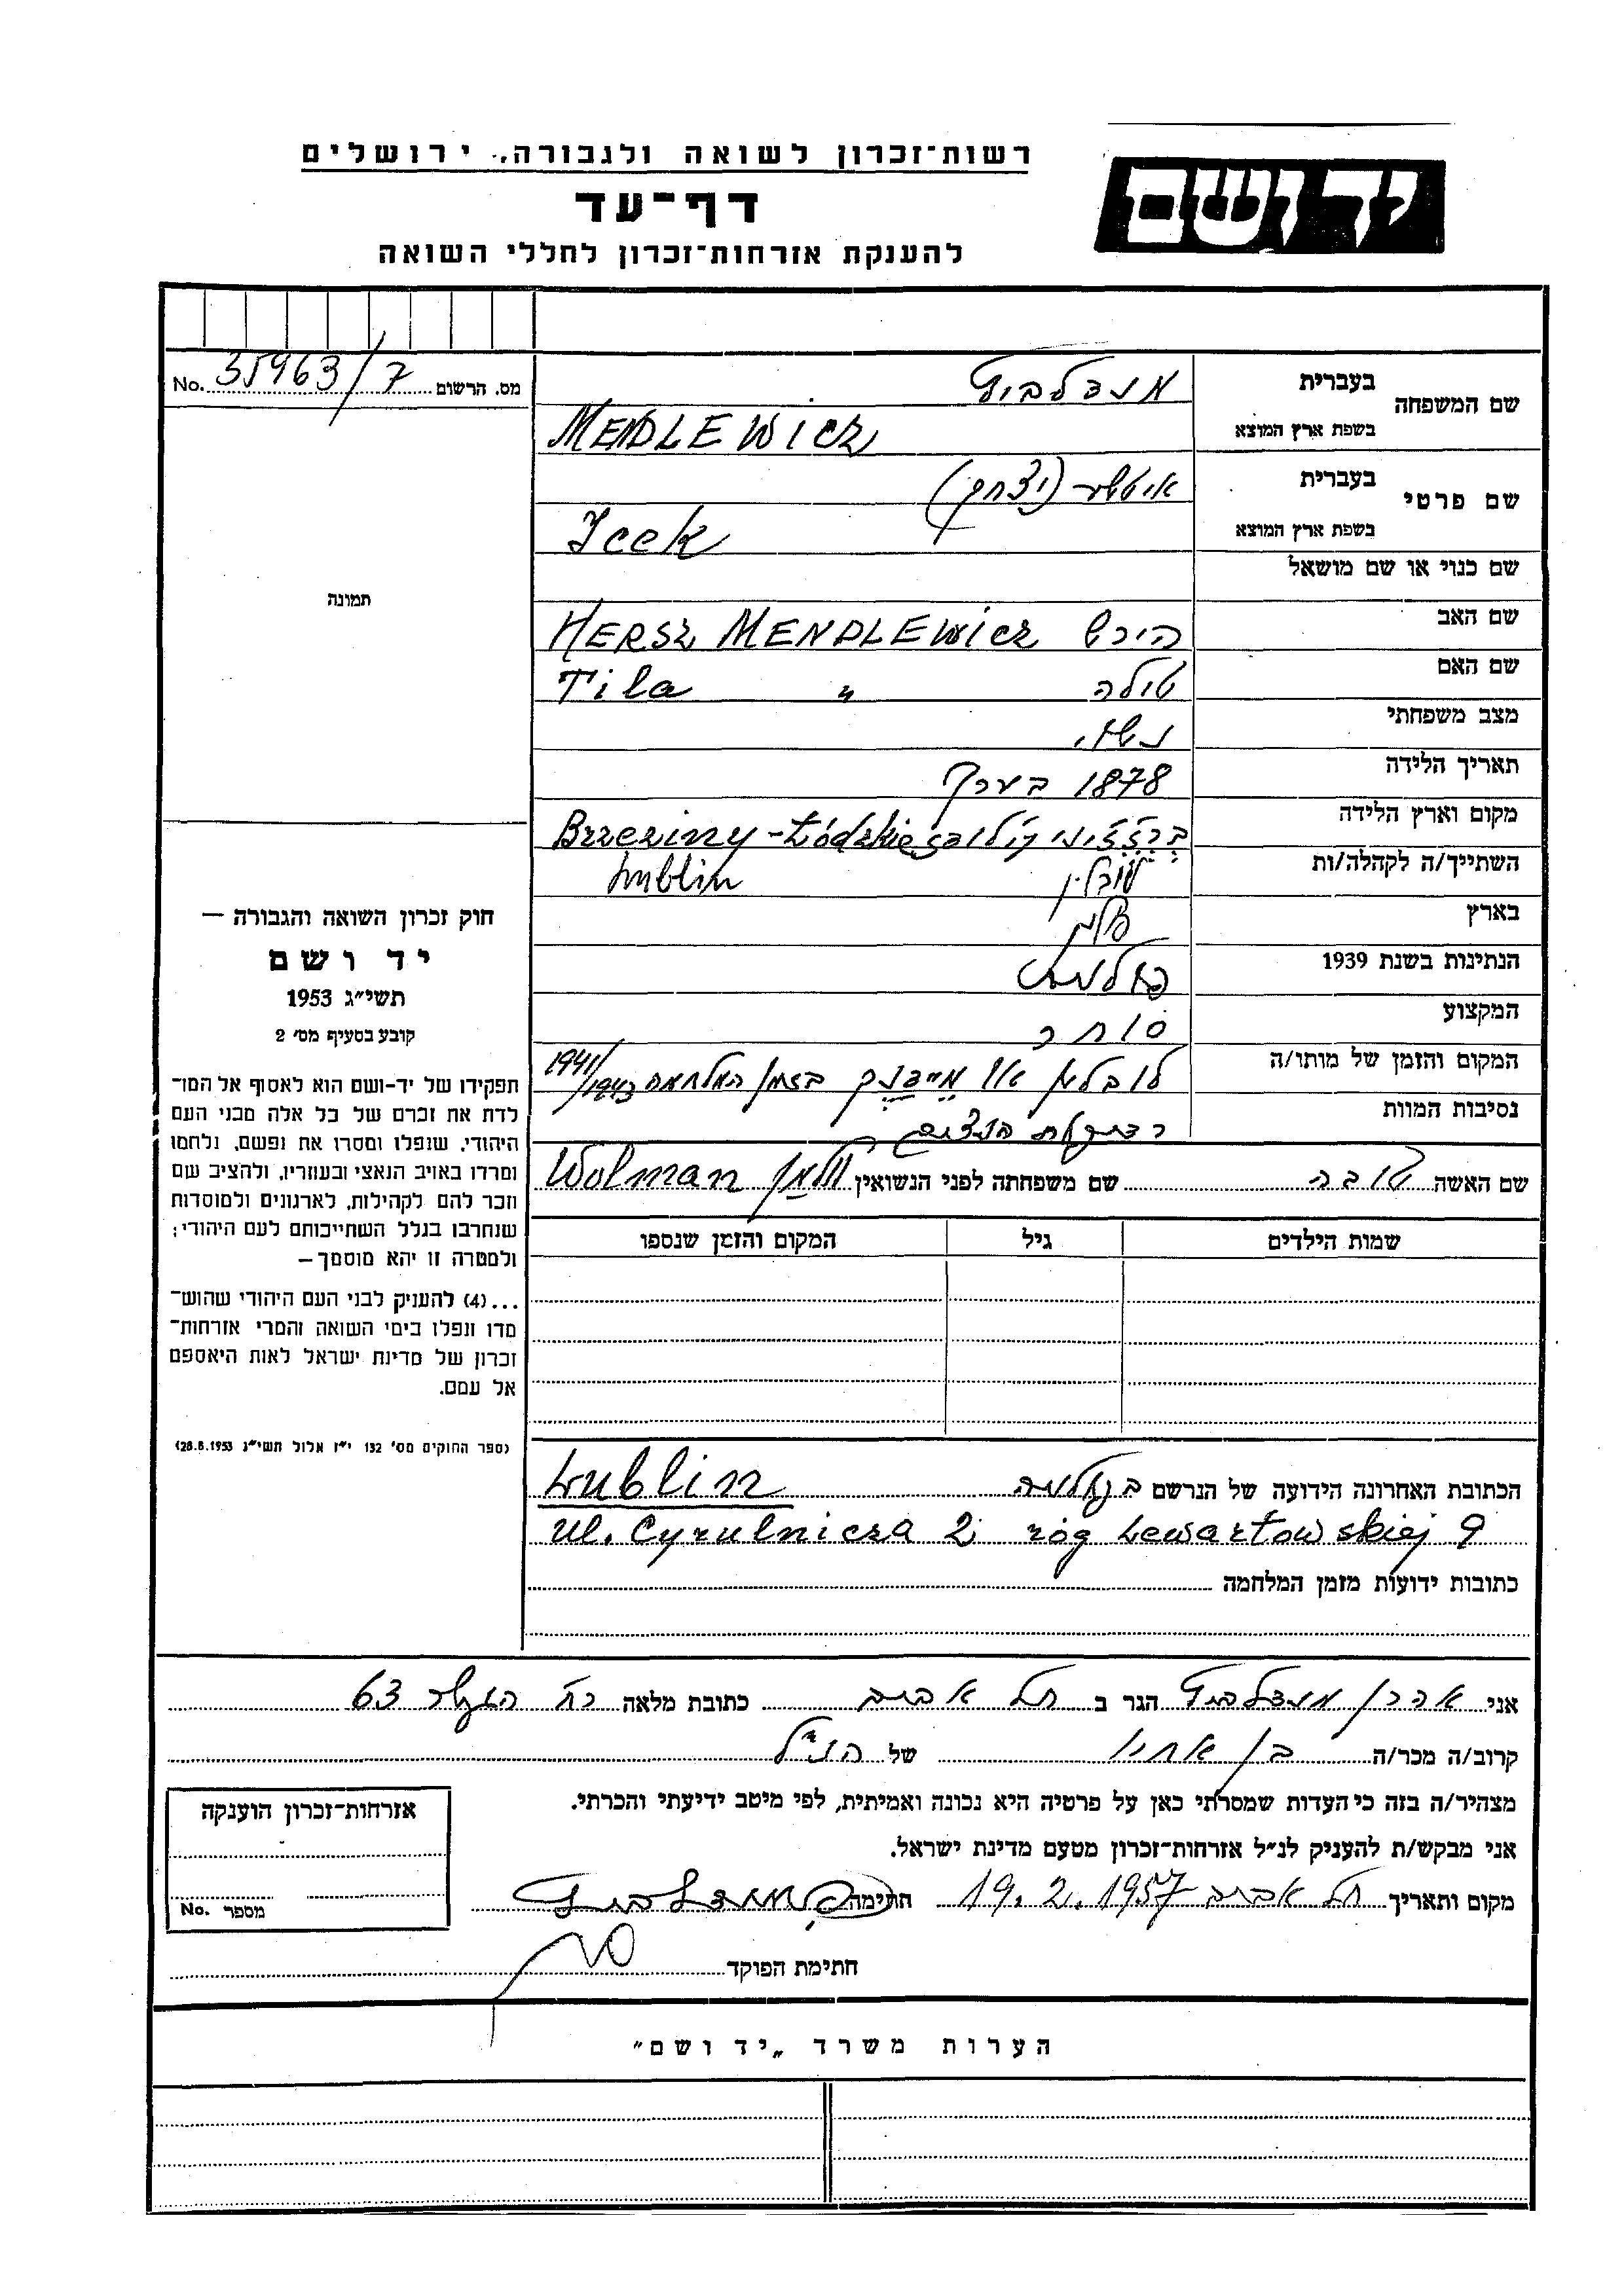 רשות־זכרון לשואה ולגבורה, ירושלים
יד ושם
דף־עד
להענקת אזרחות־זכרון לחללי השואה
מס. הרשום 35963/7 No.
שם המשפחה בעברית מנדלביץ
בשפת ארץ המוצא MENDLEWicz
שם פרטי בעברית איטשע (יצחק)
בשפת ארץ המוצא Icek
שם כנוי או שם מושאל
שם האב הירש HERSZ MENDLEWicz
שם האם טילה Tila "
מצב משפחתי נשוי
תאריך הלידה 1878 בערך
מקום וארץ הלידה ברזזיני Brzeziny-Łódzkie
השתייך/ה לקהלה/ות לובלין Lublin
בארץ פולין
הנתינות בשנת 1939 פולנית
המקצוע סוחר
המקום והזמן של מותו/ה לובלין או מיידנק בזמן המלחמה 1941/1943
נסיבות המוות
שם האשה טובה שם משפחתה לפני הנשואין וולמן Wolman
שמות הילדים גיל המקום והזמן שנספו
הכתובת האחרונה הידועה של הנרשם בפולניה Lublin
ul. Cyrulnicza 2 róg Lewartowskiej 9
כתובות ידועות מזמן המלחמה
תמונה
חוק זכרון השואה והגבורה —
יד ושם
תשי״ג 1953
קובע בסעיף מס׳ 2
תפקידו של יד-ושם הוא לאסוף אל המו־
לדת את זכרם של כל אלה מבני העם
היהודי, שנפלו ומסרו את נפשם, נלחמו
ומרדו באויב הנאצי ובעוזריו, ולהציב שם
וזכר להם לקהילות, לארגונים ולמוסדות
שנחרבו בגלל השתייכותם לעם היהודי;
ולמטרה זו יהא מוסמך —
...(4) להעניק לבני העם היהודי שהוש־
מדו ונפלו בימי השואה והמרי אזרחות־
זכרון של מדינת ישראל לאות היאספם
אל עמם.
(ספר החוקים מס׳ 132 י״ז אלול תשי״ג 28.8.1953)
אני אהרן מנדלביץ הגר ב תל אביב כתובת מלאה רח 63
קרוב/ה מכר/ה בן אחיו של הנ״ל
מצהיר/ה בזה כי העדות שמסרתי כאן על פרטיה היא נכונה ואמיתית, לפי מיטב ידיעתי והכרתי.
אני מבקש/ת להעניק לנ״ל אזרחות־זכרון מטעם מדינת ישראל.
מקום ותאריך תל אביב 19.2.1957 חתימה מנדלביץ
חתימת הפוקד
אזרחות־זכרון הוענקה
מספר No.
הערות משרד „יד ושם״